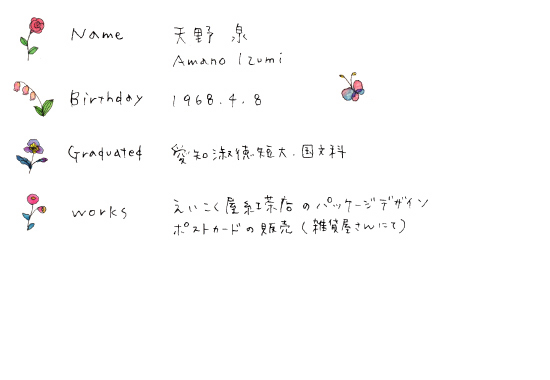 Name 天野 泉
Amano Izumi
Birthday 1968.4.8
Graduated 愛知淑徳短大.国文科
works えいこく屋紅茶店のパッケージデザイン
ポストカードの販売(雑貨屋さんにて)